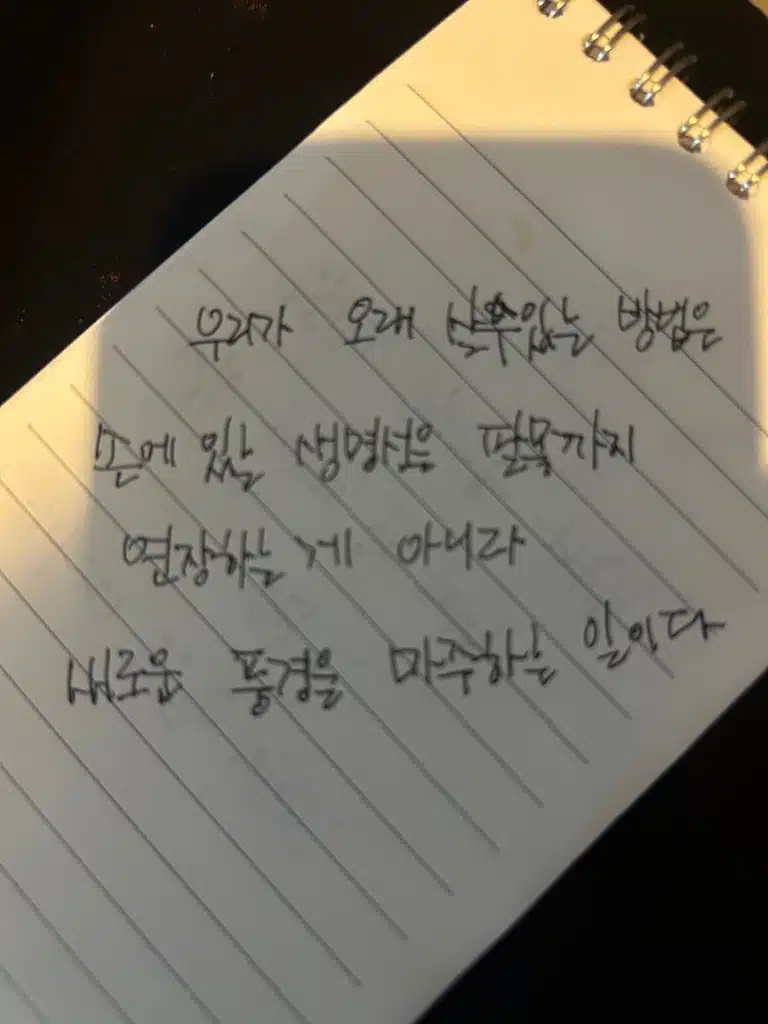 우리가 오래 살수있는 방법은
손에 있는 생명선을 팔목까지
연장하는 게 아니라
새로운 풍경을 마주하는 일이다